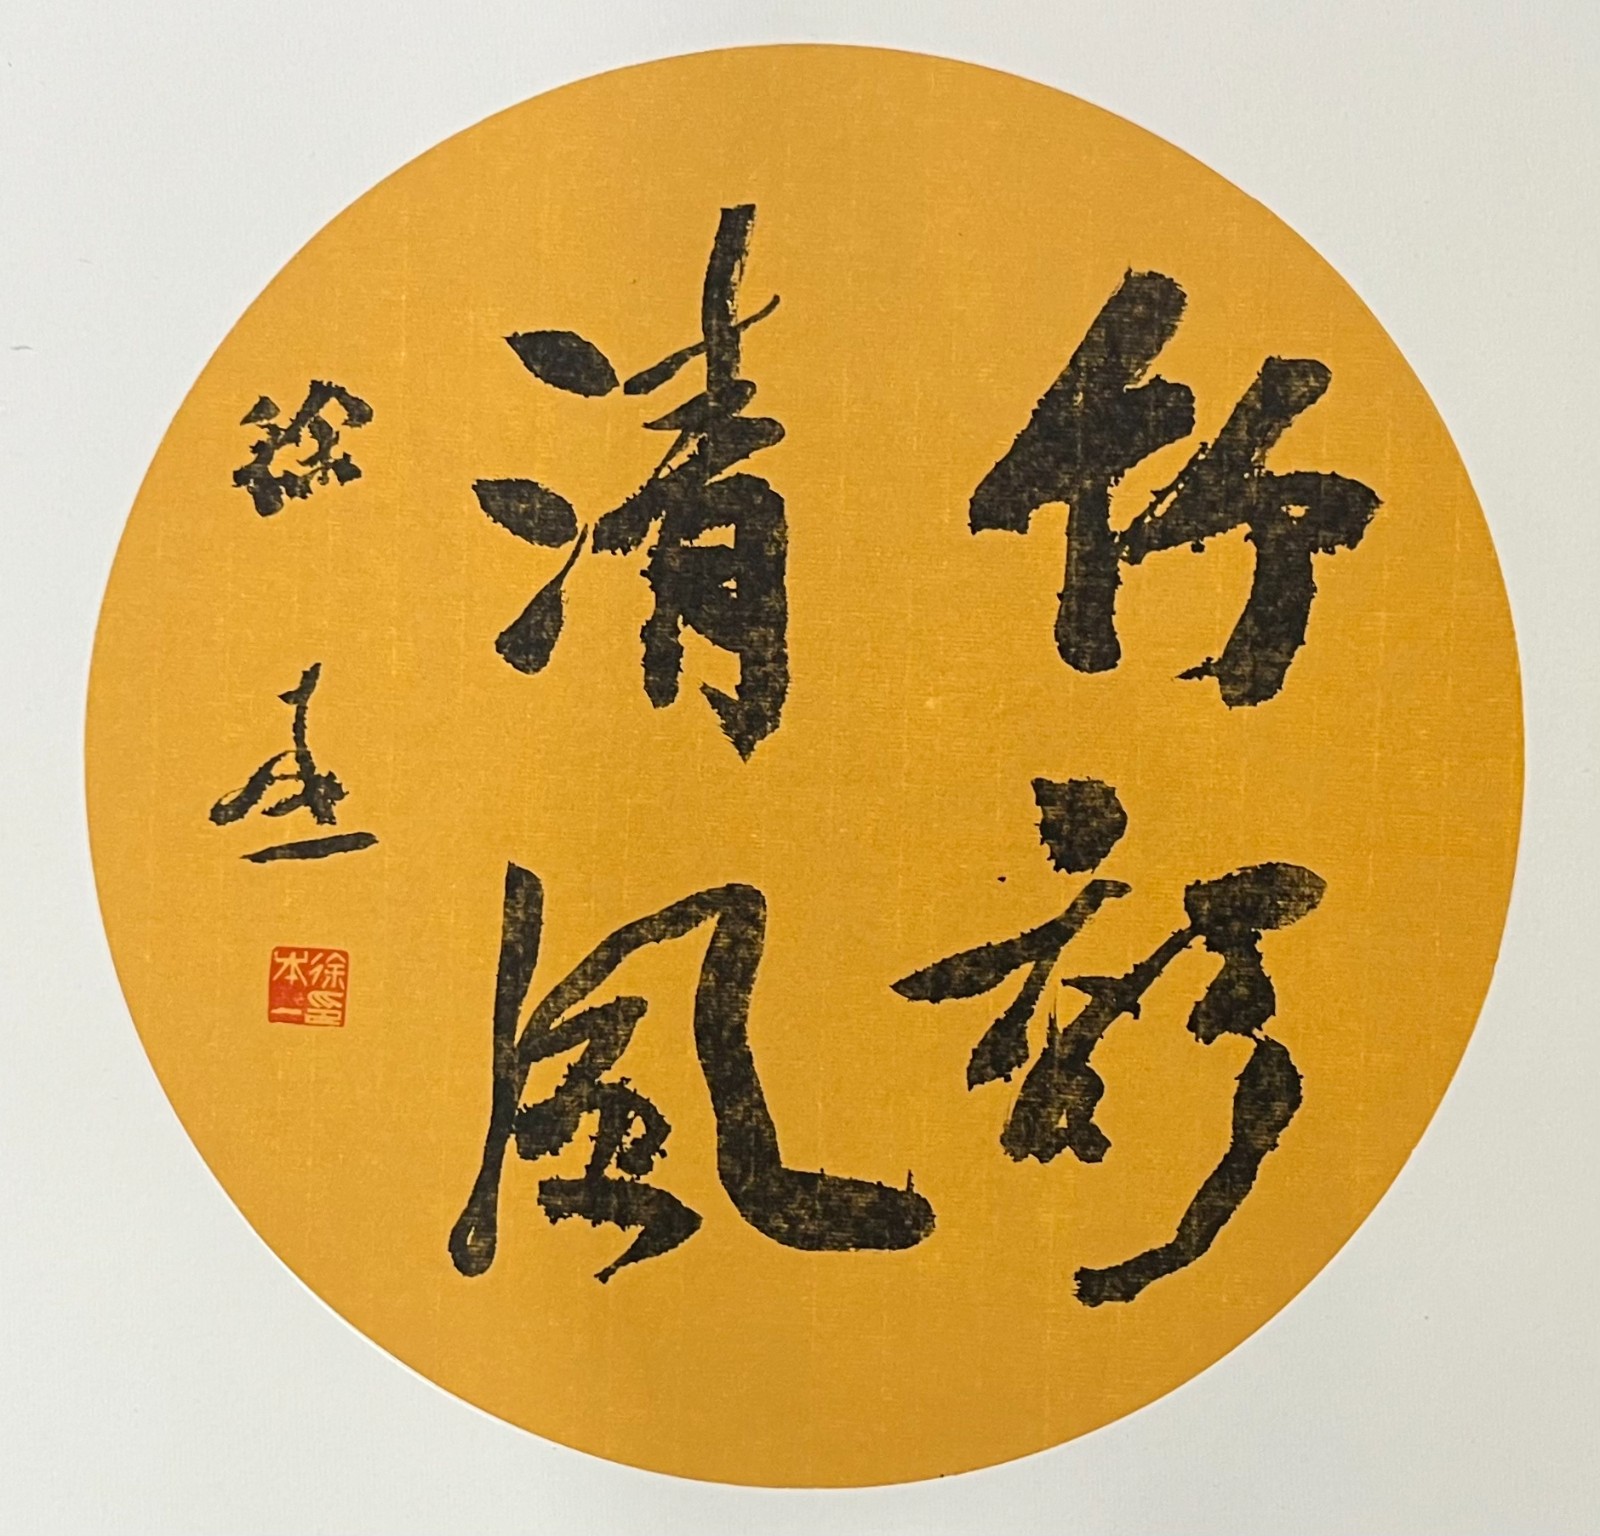 竹影
清風
徐本一
徐印
本一